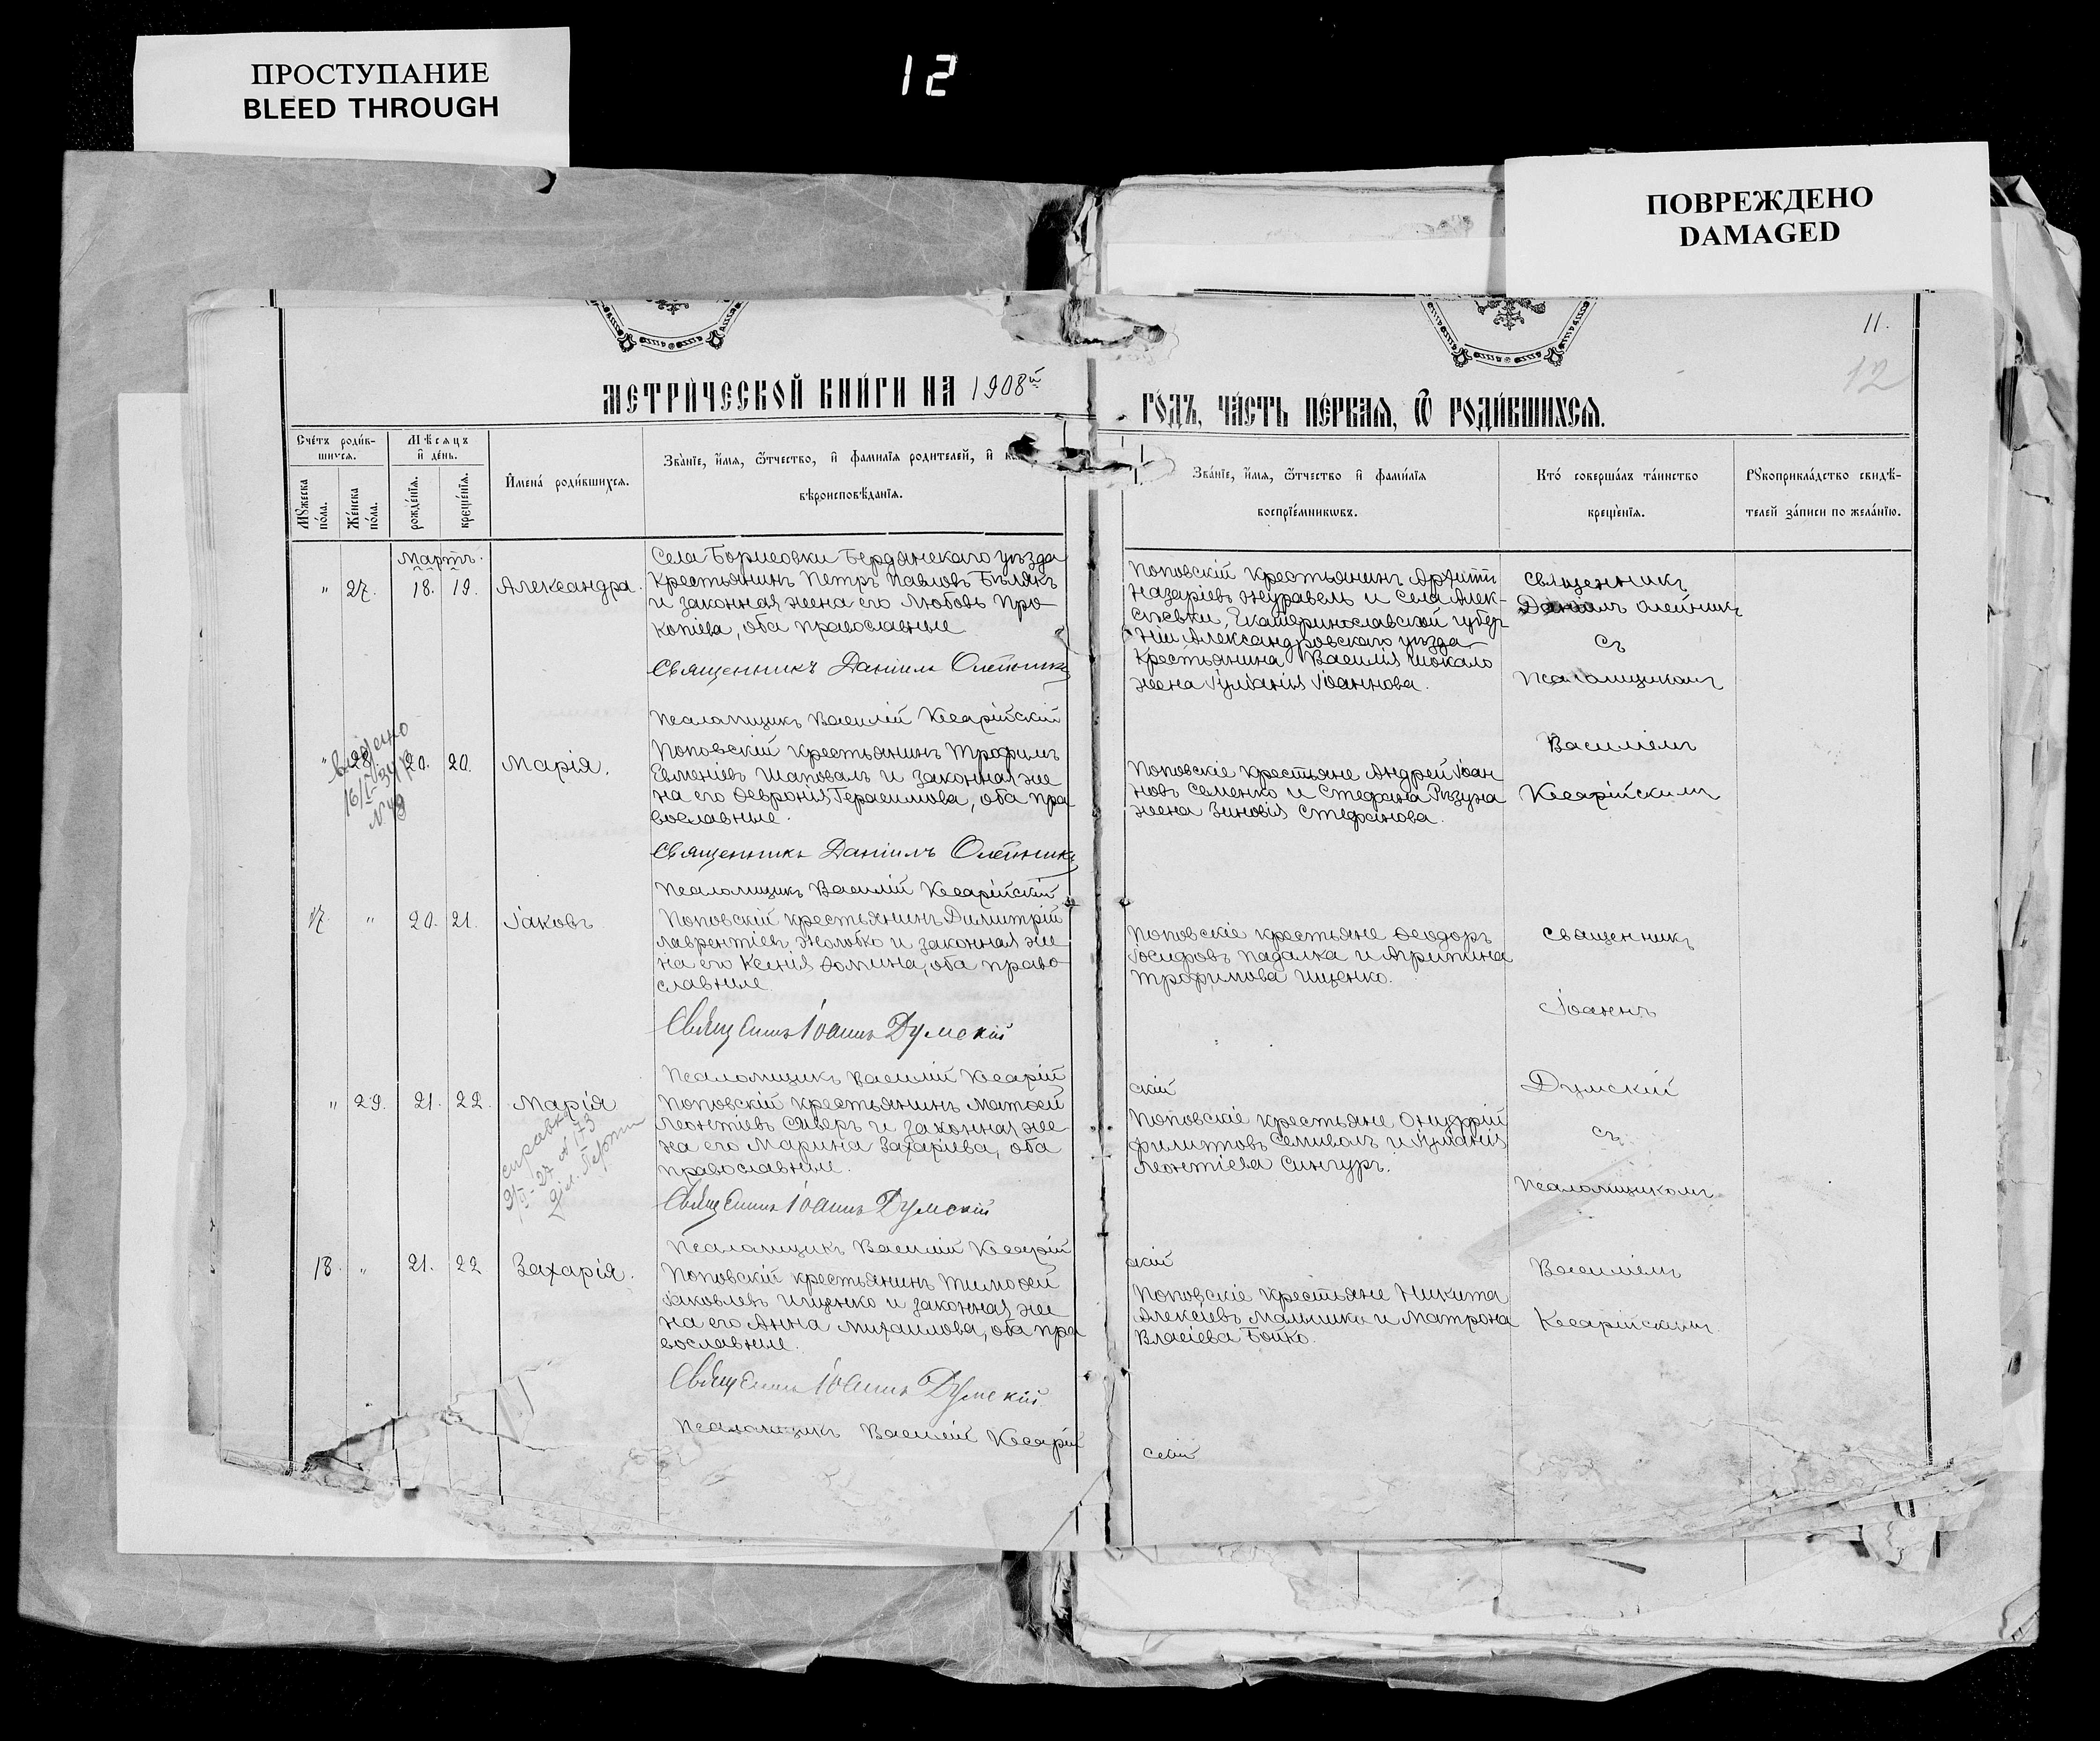 ПРОСТУПАНИЕ
BLEED THROUGH
12
ПОВРЕЖДЕНО
DAMAGED
11.
12
МЕТРИ́ЧЕСКОЙ КНИ́ГИ НА 1908й
ГО́ДЪ, ЧА́СТЬ ПЕ́РВАЯ, Ѡ РОДИ́ВШИХСЯ.
Сче́тъ роди́в-
шихся.
Мѣ́сяцъ
и де́нь.
Мꙋ́жеска
по́ла.
Же́нска
по́ла.
рожде́нїя.
креще́нїя.
Имена́ роди́вшихся.
Зва́нїе, и́мя, ѻ́тчество, и фамилїя родителей, и
вѣроисповѣ́данїя.
Зва́нїе, и́мя, ѻ́тчество и фами́лїя
воспрїе́мникѡвъ.
Кто́ соверша́лъ та́инство
креще́нїя.
Рꙋкоприкла́дство свидѣ́-
телей за́писи по жела́нїю.
Мартъ.
" 27. 18. 19. Александра.
Села Борисовки Бердянскаго уѣзда
Крестьянинъ Петръ Павловъ Бѣлякъ
и законная жена его Любовь Про-
копіева, оба православные
Священникъ Даніилъ Олейникъ
Псаломщикъ Василій Кесарійскій
Поповскій крестьянинъ Архипъ
Назаріевъ Журавель и села Алек-
сѣевки, Екатеринославской губер-
ніи Александровскаго уѣзда
Крестьянина Василія Шокало
жена Іуліанія Іоаннова.
Священникъ
Даніилъ Олейникъ
съ
Псаломщикомъ
Василіемъ
Кесарійскимъ
" 28. 20. 20. Марія.
16/I-34 г.
N 49
Поповскій крестьянинъ Трофимъ
Евменіевъ Шаповалъ и законная же
на его Февронія Герасимова, оба пра
вославные.
Священникъ Даніилъ Олейникъ
Псаломщикъ Василій Кесарійскій
Поповскіе крестьяне Андрей Іоан
новъ Семенко и Стефана Рѣзуна
жена Зиновія Стефанова.
17. " 20. 21. Іаковъ
Поповскій крестьянинъ Димитрій
Лаврентіевъ Жолобко и законная же
на его Ксенія Фомина, оба право-
славные.
Священникъ Іоаннъ Думскій
Псаломщикъ Василій Кесарій
скій
Поповскіе крестьяне Феодоръ
Іосифовъ Падалка и Агрипина
Трофимова Ищенко.
Священникъ
Іоаннъ
Думскій
съ
Псаломщикомъ
Василіемъ
Кесарійскимъ
" 29. 21. 22. Марія
справка
N 173
Поповскій крестьянинъ Матфей
Леонтіевъ Сиверъ и законная же
на его Марина Захаріева, оба
православные.
Священникъ Іоаннъ Думскій
Псаломщикъ Василій Кесарій
скій
Поповскіе крестьяне Онуфрій
Филиповъ Семиволъ и Іуліанія
Леонтіева Сингуръ.
18. " 21. 22 Захарія.
Поповскій крестьянинъ Тимофей
Іаковлевъ Ищенко и законная же
на его Анна Михаилова, оба пра
вославные.
Священникъ Іоаннъ Думскій
Псаломщикъ Василій Кесарій
скій
Поповскіе крестьяне Никита
Алексіевъ Мальчика и Матрона
Власіева Бойко.